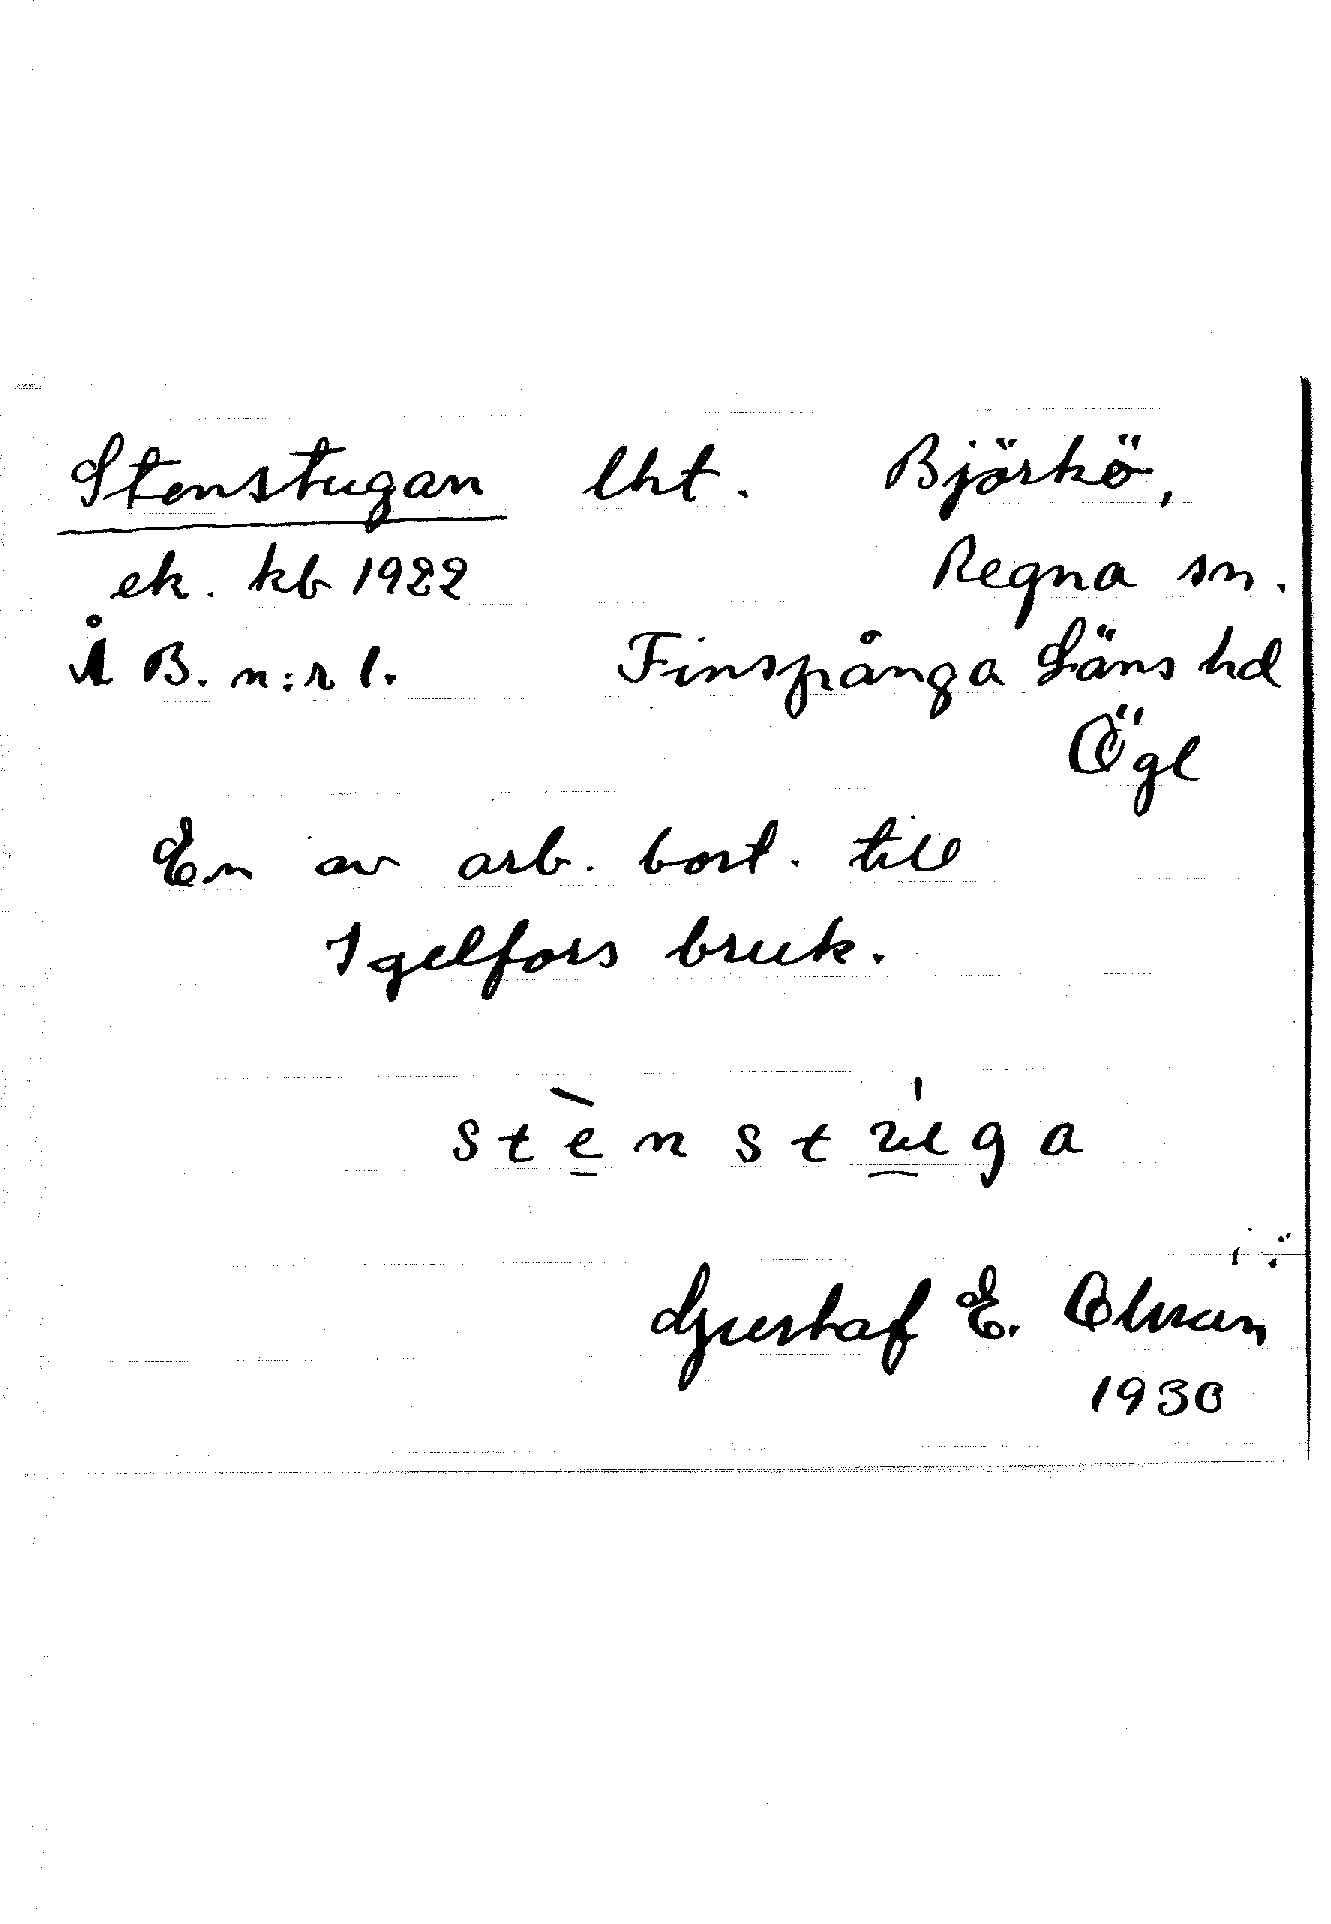 Stenstugan lht. Björkö,
ek. kb 1922 Regna sn.
Å B. n:r 1. Finspånga Läns hd
Ögl
En av arb. bost. till
Igelfors bruk.
stènstúga
Gustaf E.
1930